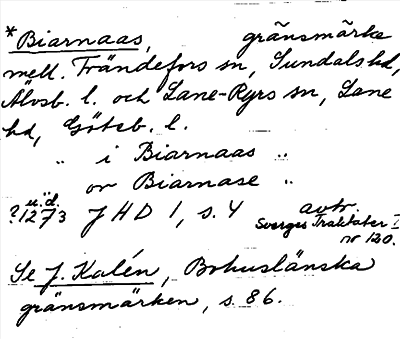 *Biarnaas, gränsmärke
mell. Frändefors sn, Sundals hd,
Älvsb. l. och Lane-Ryrs sn, Lane
hd, Göteb. l.
„ i Biarnaas „
or Biarnase „
u.å.
?1273 JHD 1, s. 4 avtr.
Sverges Traktater I
nr 120.
Se J. Kalén, Bohuslänska
gränsmärken, s. 86.